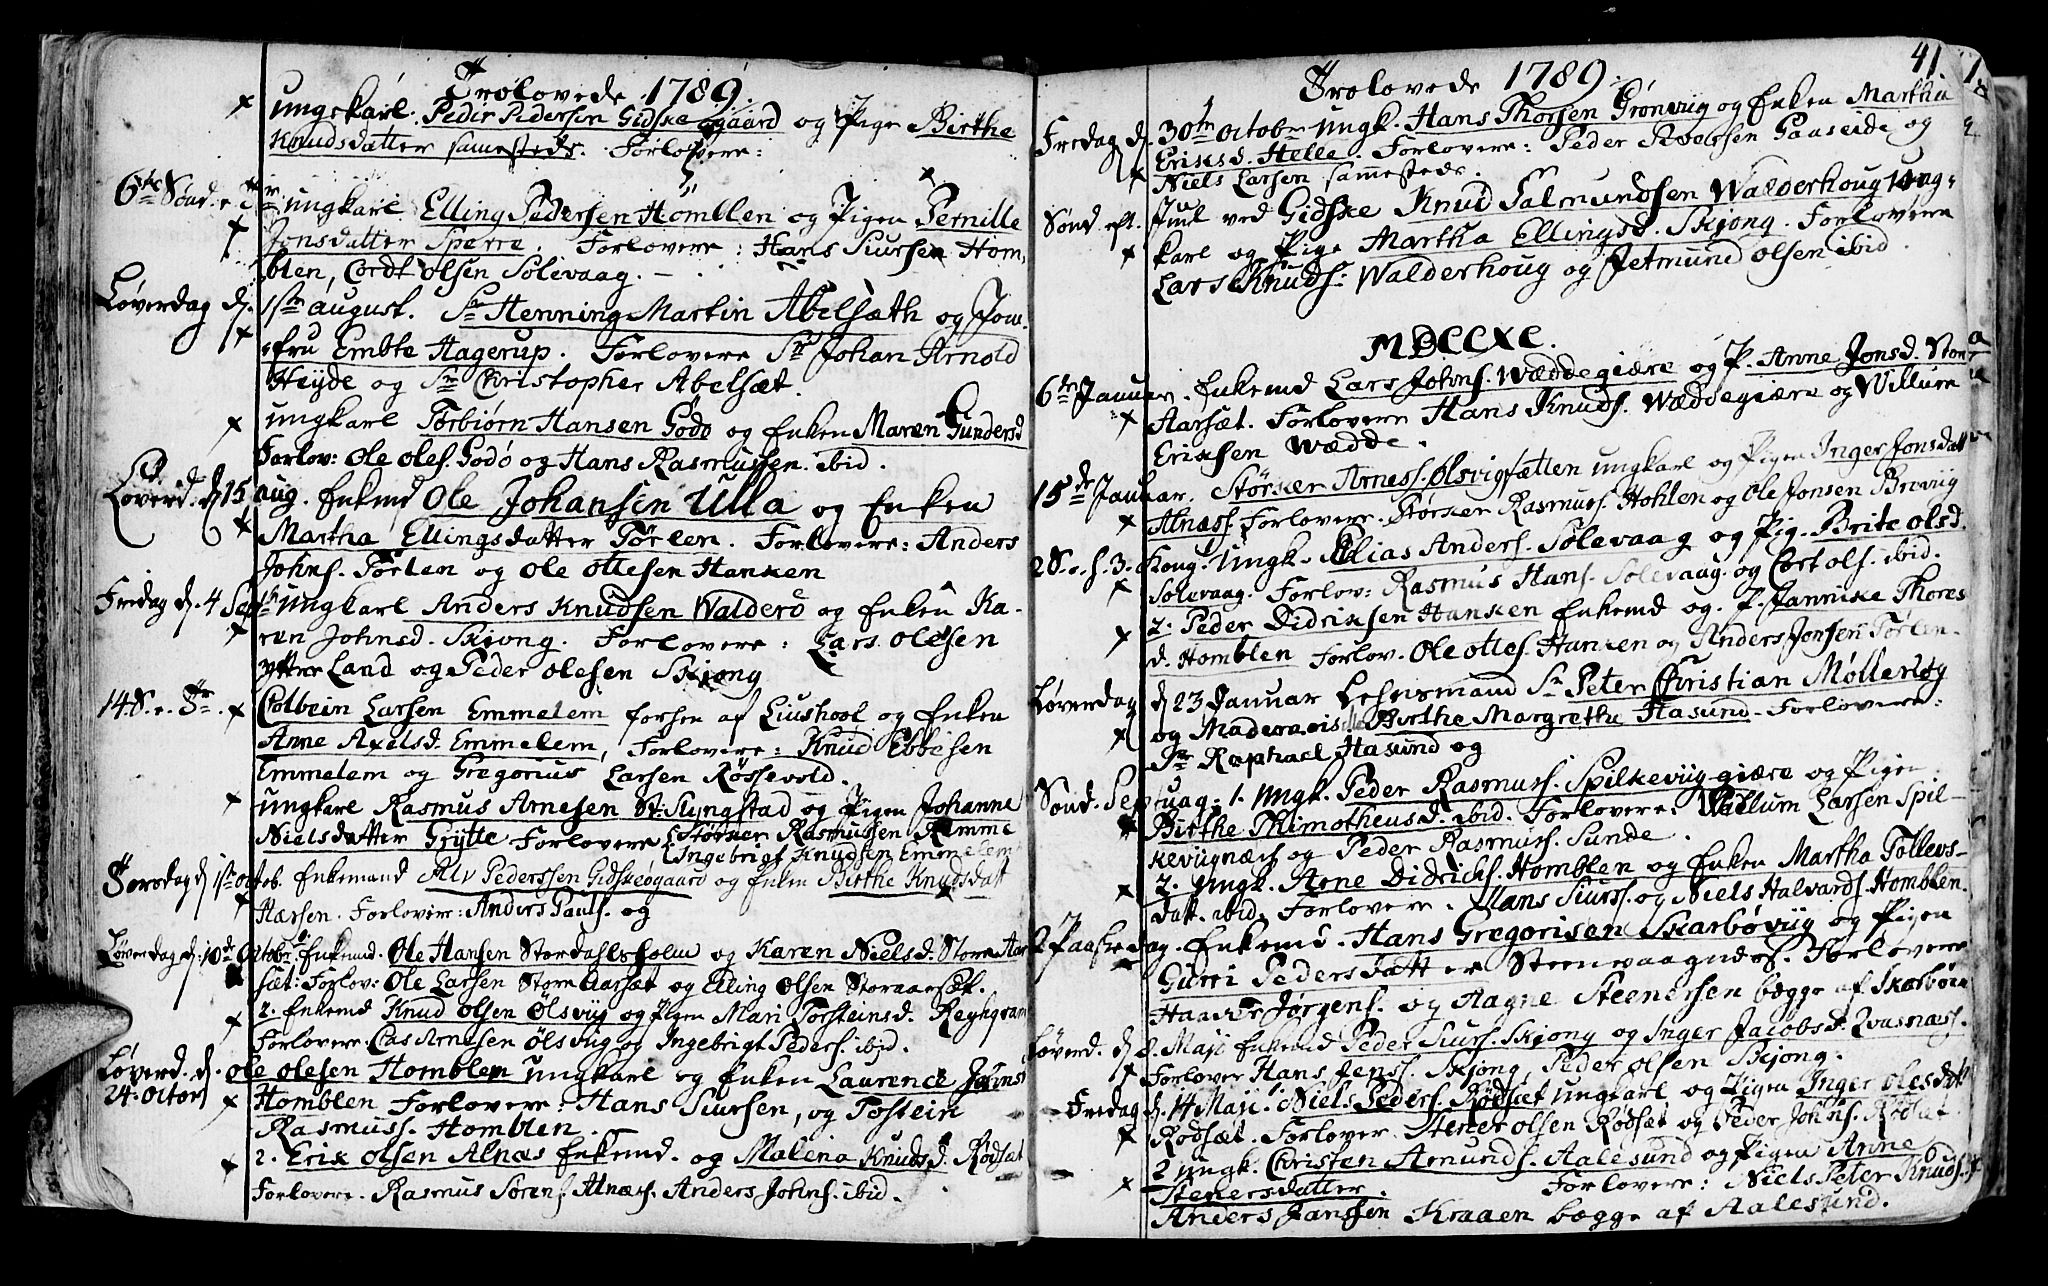 Trolovede 1789
ungekarl. Peder Pedersen Gidskeøgaard og Pige Birthe
Knudsdatter samesteds. Forlovere:
6te Sønd. e. Tr. ungkarl Elling Pedersen Homblen og Pigen Pernille
Jonsdatter Sperre. Forlovere: Hans Siursen Hom-
blen, Cordt Olsen Solevaag.
Løverdag d. 1ste august. Sr Henning Martin Abelsæth og Jom-
fru Embte Hagerup. Forlovere Sr Johan Arnold
Heyde og Sr Christopher Abelsæt.
ungkarl Torbiørn Hansen Godø og Enken Maren Gundersd
Forlov: Ole Oles. Godø og Hans Rasmussen ibid.
Løverd. d. 15 aug. Enkemd Ole Johansen Ulla og Enken
Martha Ellingsdatter Tørlen. Forlovere: Anders
Johns. Tørlen og Ole Ottesen Hanken
Fridag d. 4 Sept ungkarl Anders Knudsen Walderö og Enken Ka-
ren Johnsd. Skjong. Forlovere: Lars Olesen
ytterLand og Peder Olesen Skjong
14 S. e. Tr. Colbein Larsen Emmelem forsen af Liushool og Enken
Anne Axelsd. Emmelem, Forlovere: Knud Ebbesen
Emmelem og Gregorius Larsen Røssevold.
ungkarl Rasmus Arnesen St. Slyngstad og Pigen Johanne
Nielsdatter Grytte Forlovere Størker Rasmussen Remme
Ingebrigt Knudsen Emmelem
Torsdag d 1ste Octob. Enkemand Alv Pederssen Gidskeøgaard og Enken Birthe Knudsdatt
Hæssen. Forlovere: Anders Pauls. og
Løverdag d. 10de Octobr Enkemd. Ole Hansen Stordahlsholm og Karen Nielsd. Store Aar
sæt: Forlov: Ole Larsen Store Aarsæt og Elling Olsen Storaarsæt.
2. Enkemd Knud Olsen Ølsviig og Pigen Mari Torsteinsd. Reyhgram
Forlovere: Clas Arnesen Ölsviig og Ingebrigt Peders. ibid.
Løverd. d. Ole Olesen Homblem ungkarl og Enken Laurence Johns
24. Octob Homblen Forlovere: Hans Siursen, og Tostein
Rasmuss. Homblen.
2. Erik Olsen Alnæs Enkemd. og Malena Knudsd. Rødsæt
Forlovere. Rasmus Sørens. Alnæs. Anders Johns. ibid.
41
Trolovede 1789.
Fredag d. 30te Octobr ungk. Hans Thorsen Grønviig og Enken Martha
Eriksd. Helle. Forlovere: Peder Iversen Gaaseide og
Niels Larsen samestede.
Sønd eft. Juul ved Gidske Knud Salmundsen Walderhoug ung-
karl og Pige Martha Ellingsd. Skjong. Forlovere
Lars Knuds. Walderhoug og Jetmund Olsen ibid.
MDCCXC.
6te Januar. Enkemd Lars Johns. Wæddegiære og P. Anne Jonsd. Stor
Aarsæt. Forlovere Hans Knuds. Wæddegiære og Willum
Eriksen Wædde.
15de Januar. Størker Arness. Ølsvigsætten ungkarl og Pigen Inger Jonsdatt
Alnæss. Forlovere. Størker Rasmuss. Hohlen og Ole Jonsen Breviig
2 S. e. h. 3. Kong. Ungk. Elias Anders. Solevaag og Pig. Brite Olsd.
Solevaag. Forlov: Rasmus Hans. Solevaag og Cort Ols. ibid.
2. Peder Didriksen Hanken Enkemd og P. Jannike Thores
d. Homblen Forlov. Ole Ottes. Hanken og Anders Jonsen Tørlen.
Løverdag d 23 Januar Lehnsmand Sr Peter Christian Møllerløg
og Maderaois Birthe Margretha Hasund. Forlovere:
Sr Raphael Hasund og
Sønd. Septuag. 1. Ungk. Peder Rasmuss. Spilkeviiggiære og Pigen
Birthe Thimotheusd. ibid. Forlovere: Willum Larsen Spil-
keviignæs og Peder Rasmuss. Sunde.
2. Ungk. Arne Didricks. Homblen og Enken Martha Tollevs-
Datt. ibid. Forlovere. Hans Siurss. og Niels Halvards. Homblen.
2 Paaskedag. Enkemd. Hans Gregorisen Skarbøviig og Pigen
Gurri Pedersdatter Steenvaagnæs. Forlovere
Haaver Jørgens. og Aagne Steenersen begge af Skarbøen
Løverd. d 8. Maji Enkemd Peder Siurs. Skjong og Inger Jacobsd. Qvasnæs.
Forlover Hans Jenss. Skjong, Peder Olsen Skjong.
Fredag d. 14 Maji. Niels Peders. Rødsæt ungkarl og Pigen Inger Olesdatt
Rødsæt. Forlover Stener Olsen Rødsæt og Peder Johns. Rødsæt.
2 Ungk. Christen Amunds. Aalesund og Pigen Anne
Stenersdatter. Forlovere: Niels Peter Knuds.
Anders Janssen Kraaen begge af Aalesund.